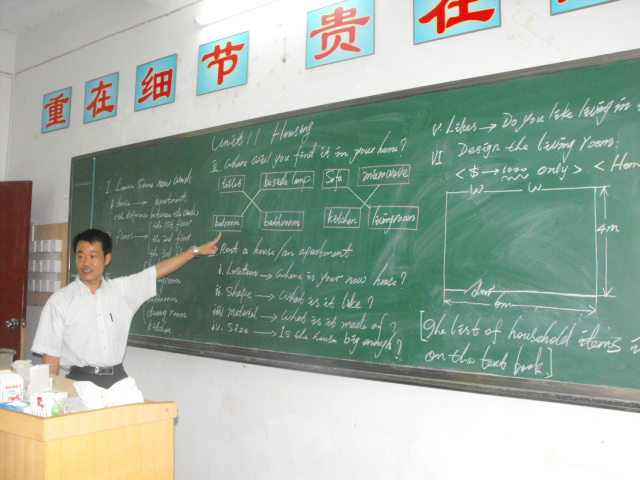 重在细节 贵在
Unit 11 Housing
I. Learn Some new words
house → apartment
the difference between the
floors → the 1st floor
the 2nd floor
the 3rd floor
dining room
kitchen
II. Where will you find it in your home?
toilet bedside lamp Sofa microwave
bedroom bathroom kitchen livingroom
Rent a house/an apartment
i. Location → Where is your new house?
ii. Shape → What is it like?
iii material → What is it made of?
iv. Size → Is the house big enough?
V. Likes → Do you like living in
VI Design the living room
< 1000 only > < Hom
W W
4m
door
6m
[The list of household items is
on the text book]